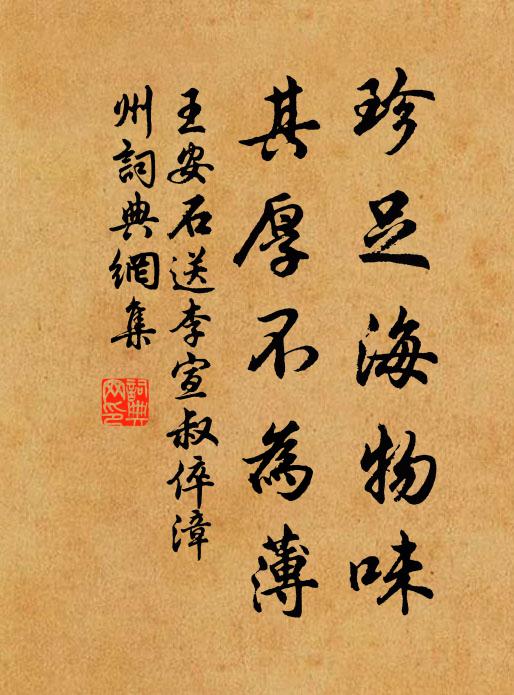 珍足海物味
其厚不為薄
王安石送李宣叔倅漳
州詞典網集
詞典
網印